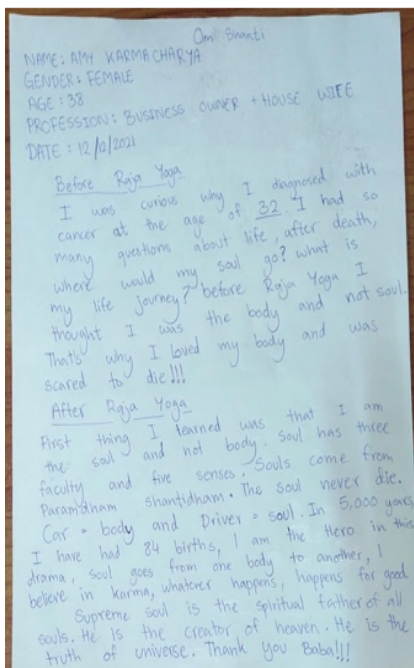 Om Shanti
NAME: AMY KARMACHARYA
GENDER: FEMALE
AGE: 38
PROFESSION: BUSINESS OWNER + HOUSE WIFE
DATE: 12/12/2021
Before Raja Yoga
I was curious why I diagnosed with
cancer at the age of 32. I had so
many questions about life, after death,
where would my soul go? what is
my life journey? before Raja Yoga I
thought I was the body and not soul.
That's why I loved my body and was
scared to die!!!
After Raja Yoga
First thing I learned was that I am
the soul and not body. Soul has three
faculty and five senses. Souls come from
Paramdham shantidham. The soul never die.
Car = body and Driver = soul. In 5,000 years
I have had 84 births, I am the Hero in this
drama, soul goes from one body to another, I
believe in karma, whatever happens, happens for good
Supreme soul is the spiritual father of all
souls. He is the creator of heaven. He is the
truth of universe. Thank you Baba!!!